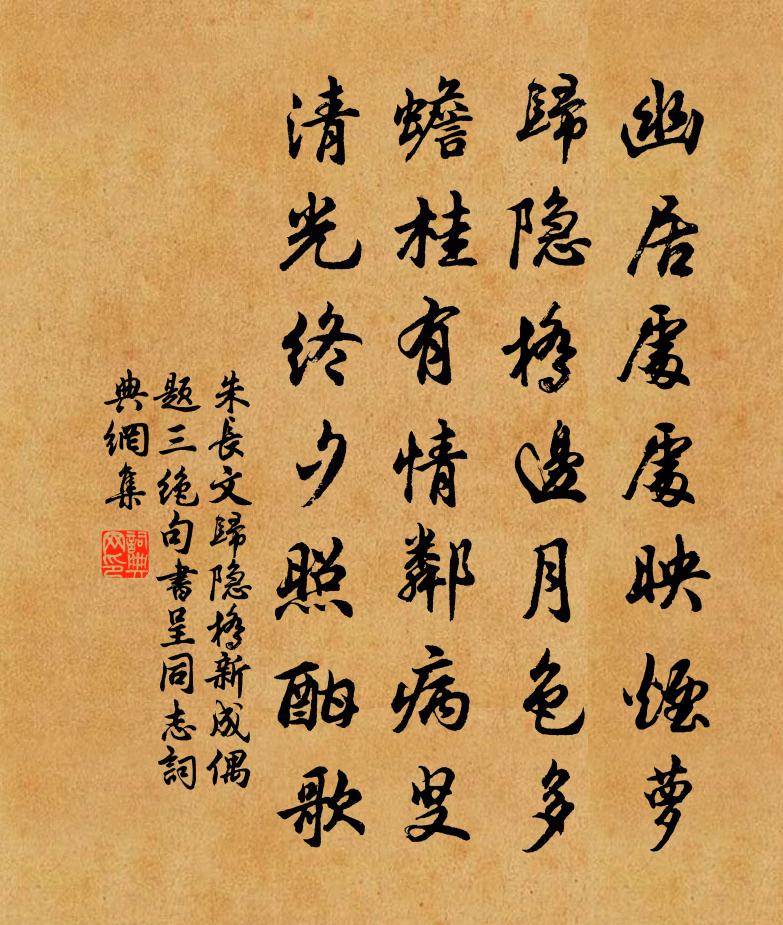 幽居處處映煙萝
歸隐橋邊月色多
蟾桂有情鄰病叟
清光終夕照酣歌
朱長文歸隐橋新成偶
題三绝句書呈同志詞
典網集
詞典
网印